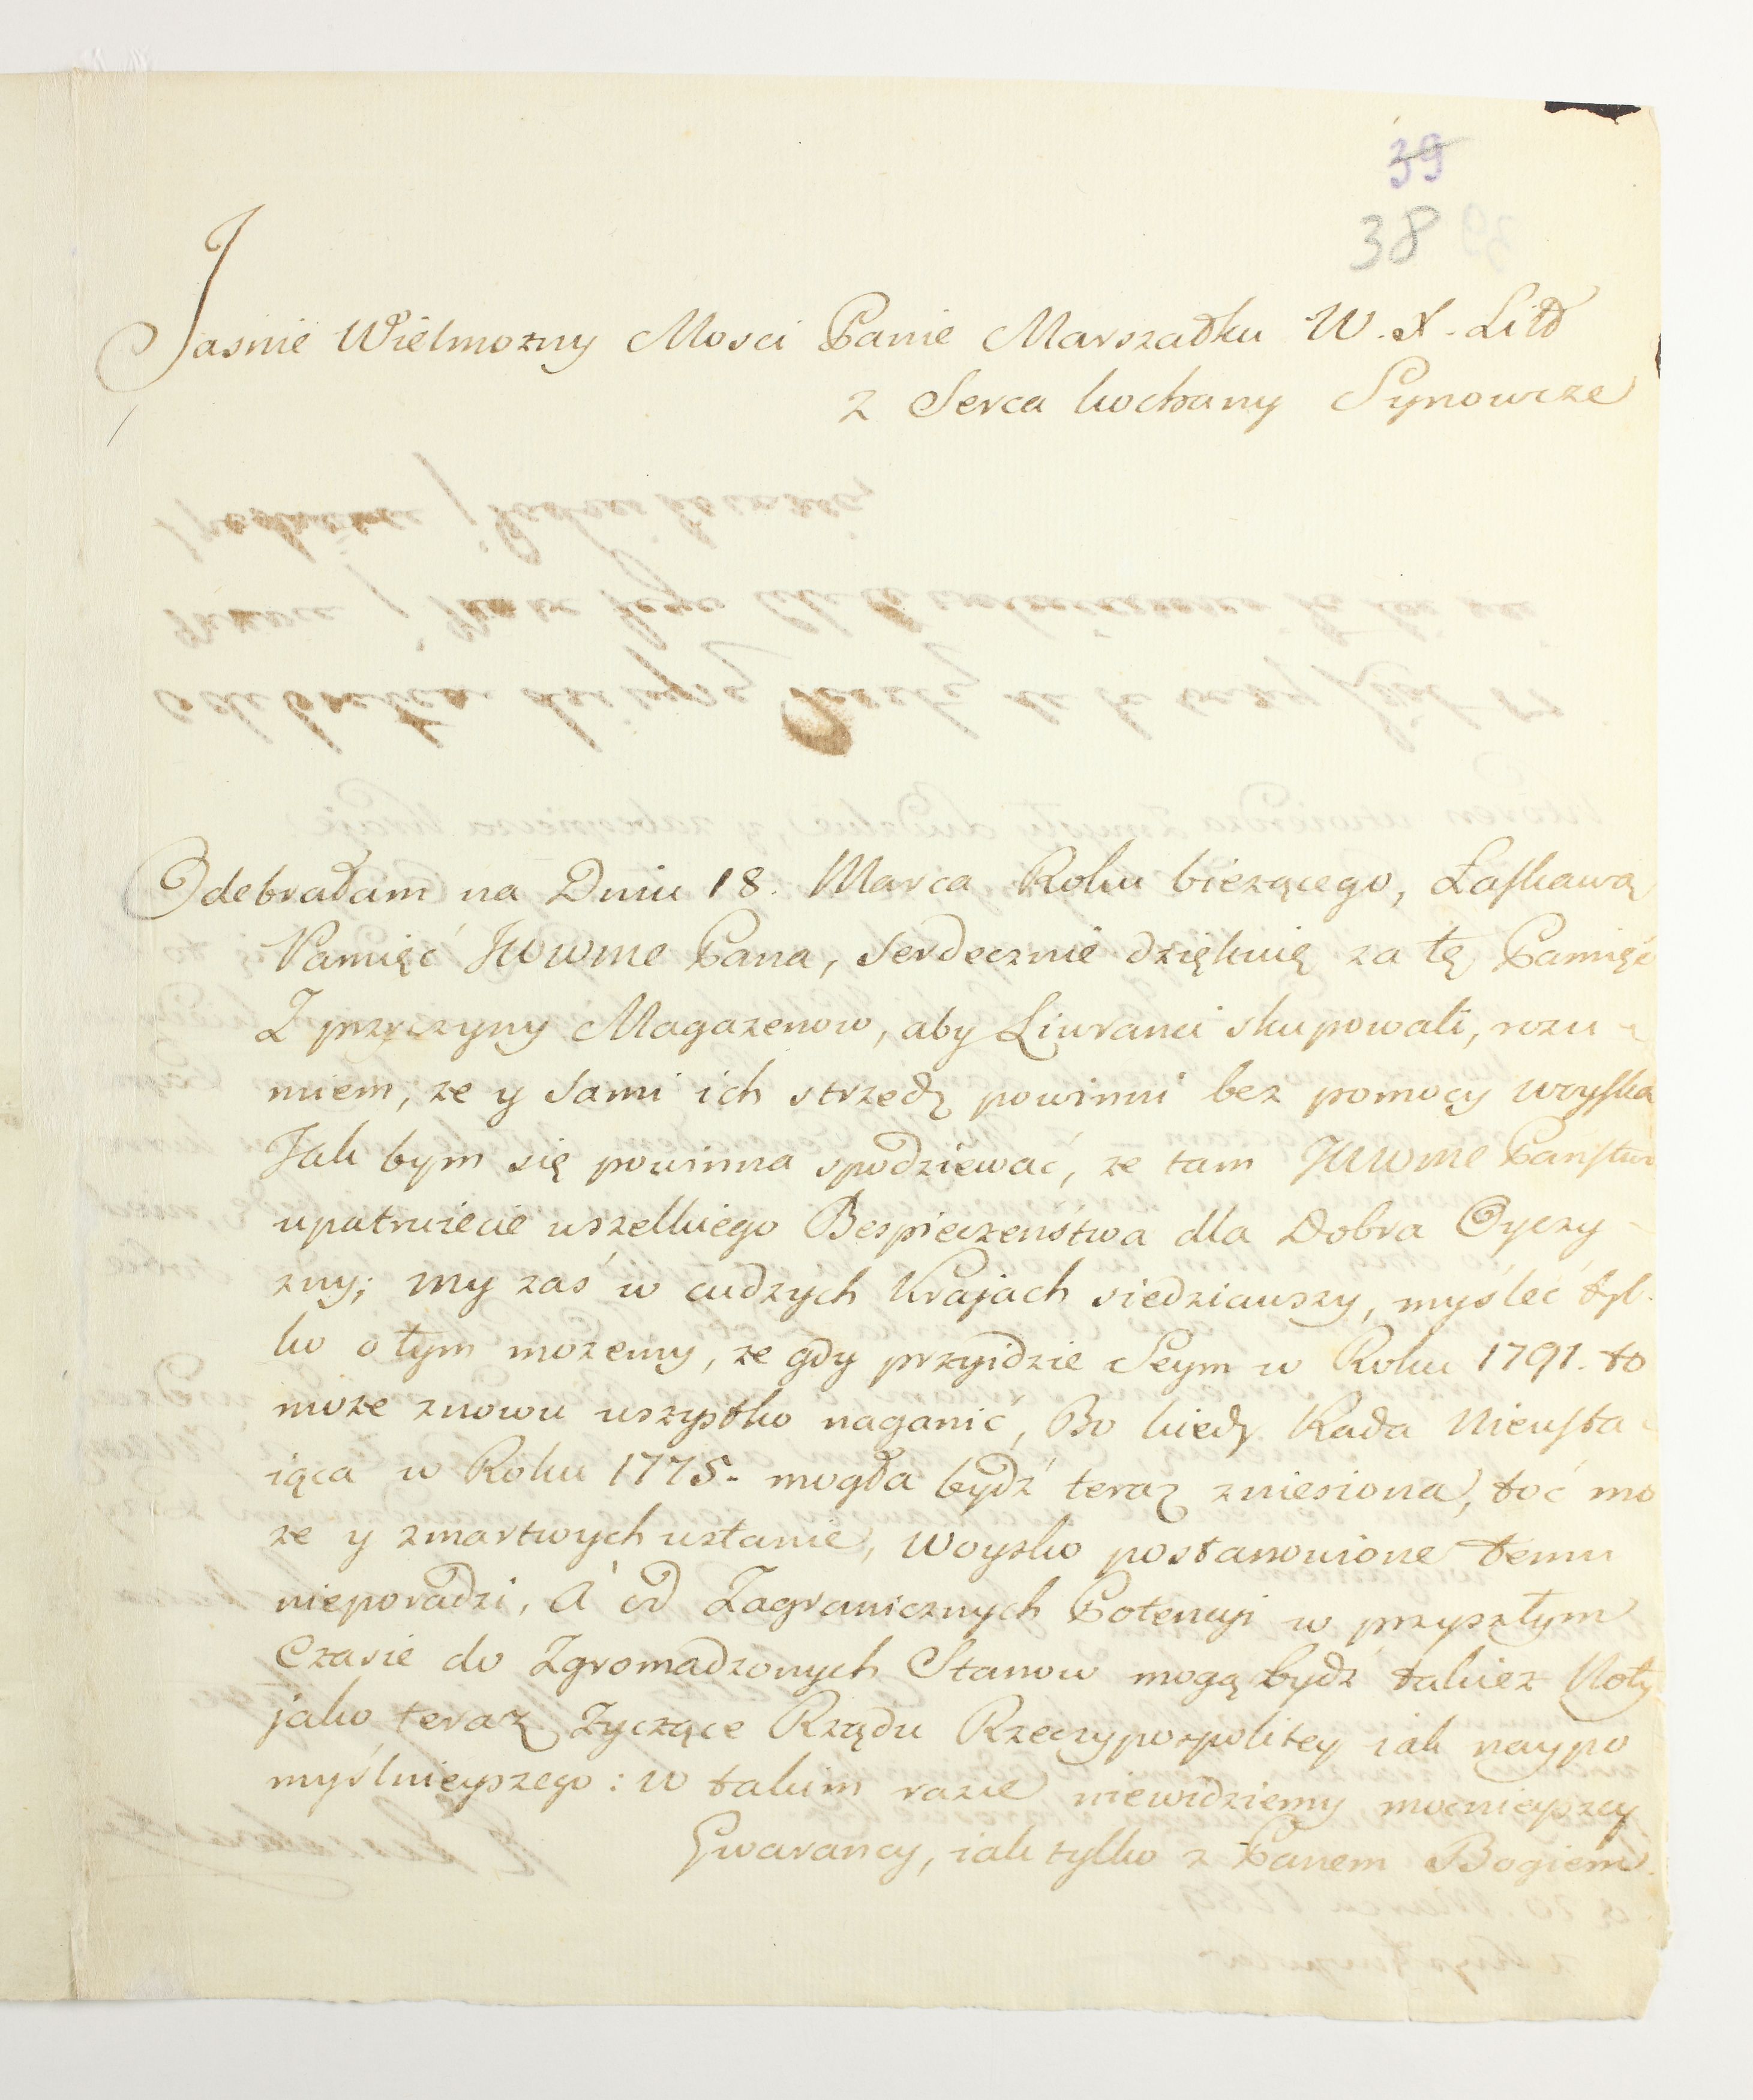 39
38
Jasnie Wielmozny Mosci Panie Marszałku W. X. Litt
z Serca kochany Synowcze
Odebrałam na Dniu 18. Marca Roku bieżącego, Łaskawą
Pamięć JWWMC Pana, serdecznie dziękuię za tę Pamięć
Z przyczyny Magazenow, aby Liwranci skupowali, rozu-
miem, ze y sami ich strzedz powinni bez pomocy woyska
Jak bym się powinna spodziewać, ze tam JWWMC Państwo
upatruiecie wszelkiego Bespieczeństwa dla Dobra Oyczy-
zny; my zaś w cudzych Krajach siedziawszy, myśleć tyl-
ko o tym mozemy, ze gdy przyidzie Seym w Roku 1791. to
moze znowu wszystko naganić, Bo kiedy Rada Nieusta-
iąca w Roku 1775. mogła bydź teraz zniesiona, toć mo
ze y zmartwychwstanie, woysko postanowione temu
nieporadzi, A od Zagranicznych Potencyi w przyszłym
Czasie do Zgromadzonych Stanow mogą bydź takiez Noty
jako teraz Zyczące Rządu Rzeczypospolitey iak naypo
myślnieyszego: w takim razie niewidziemy mocnieyszey
Gwarancy, iak tylko z Panem Bogiem.